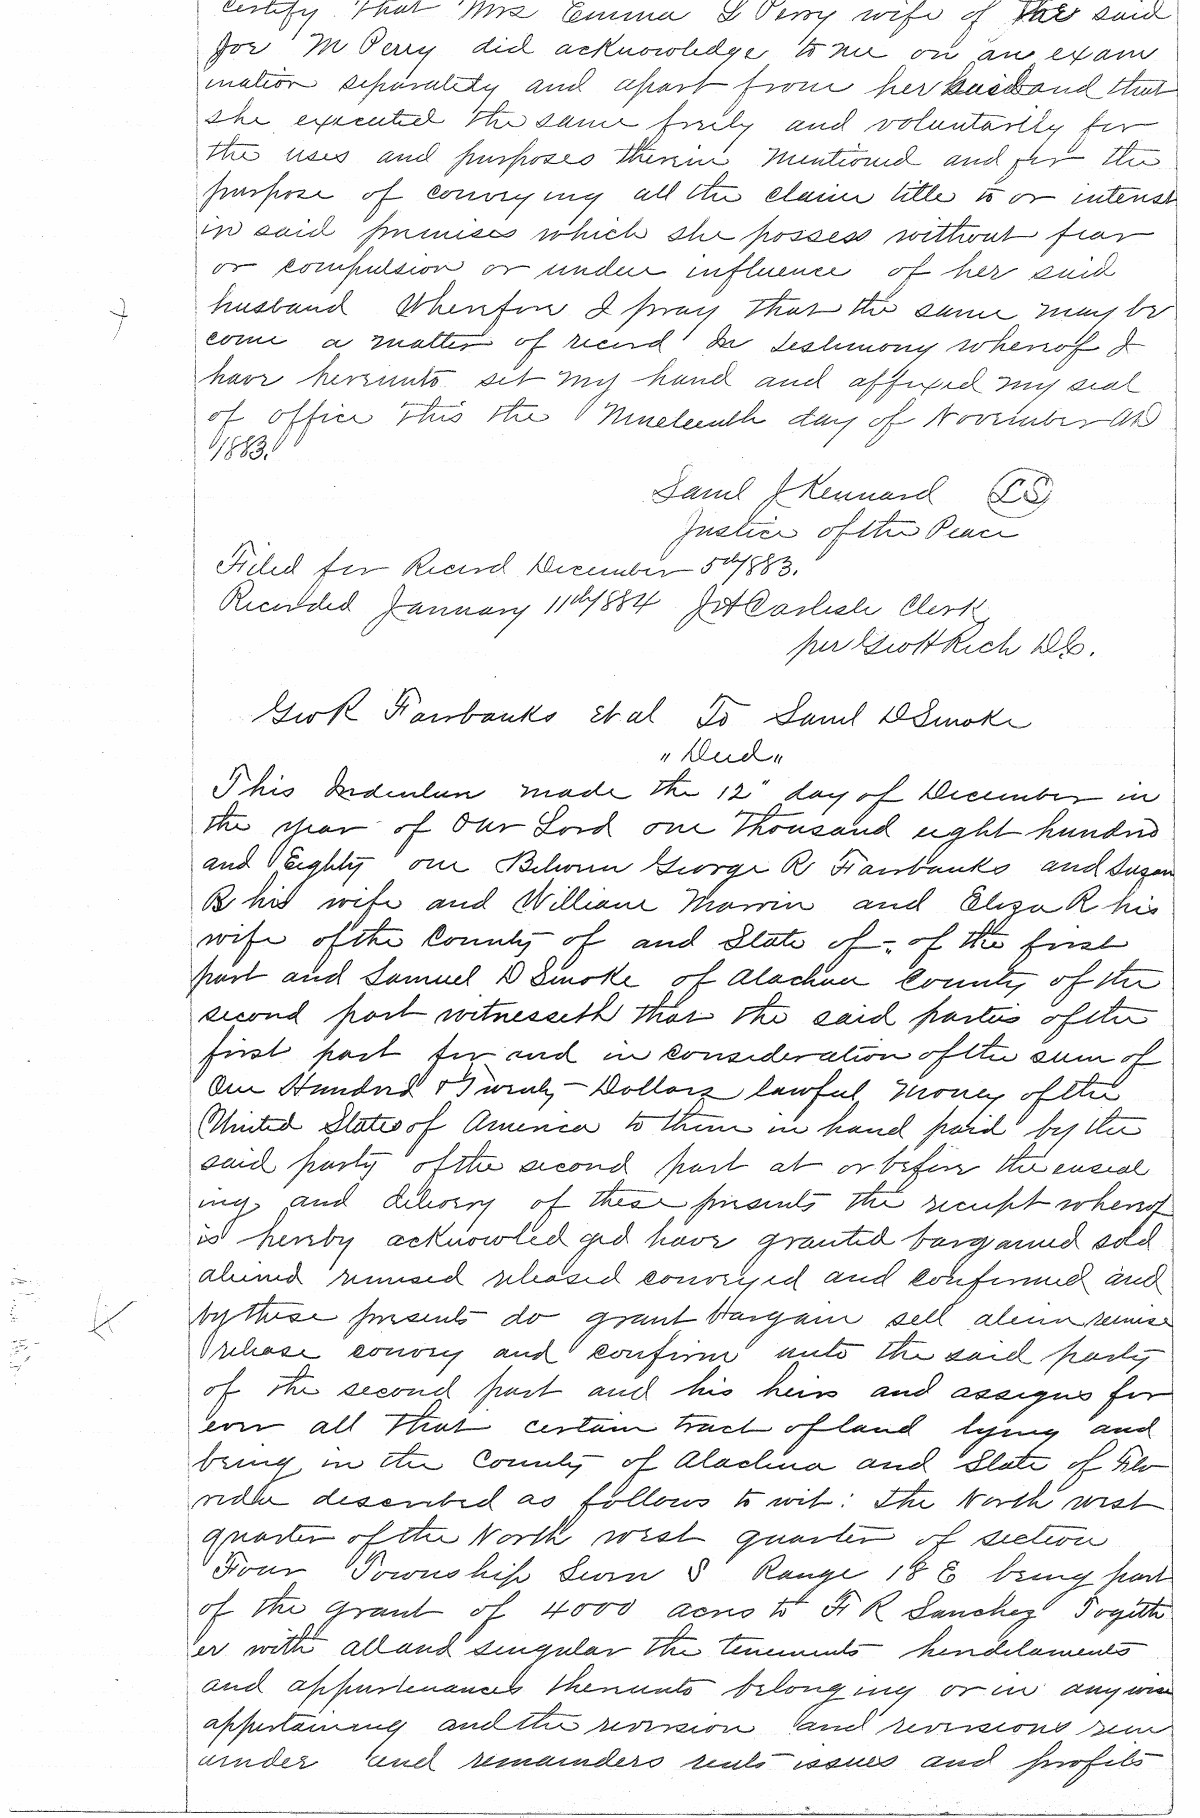 certify that Mrs Emma L Perry wife of the said
Joe M Perry did acknowledge to me on an exam
ination separately and apart from her husband that
she executed the same freely and voluntarily for
the uses and purposes therein mentioned and for the
purpose of conveying all the claim title to or interest
in said premises which she possess without fear
or compulsion or undue influence of her said
husband Wherefore I pray that the same may be
come a matter of record In testimony whereof I
have hereunto set my hand and affixed my seal
of office this the Nineteenth day of November AD
1883.
Saml J Kennard (LS)
Justice of the Peace
Filed for Record December 5th/883.
Recorded January 11th/884 J A Carlisle Clerk
per Geo H Rich D.C.
Geo R Fairbanks et al To Saml D Smoke
"Deed"
This Indenture made the 12" day of December in
the year of Our Lord one Thousand eight hundred
and Eighty one Between George R Fairbanks and Susan
B his wife and William Marvin and Eliza R his
wife of the County of and State of - of the first
part and Samuel D Smoke of Alachua County of the
second part witnesseth that the said parties of the
first part for and in consideration of the sum of
One Hundred & Twenty - Dollars lawful money of the
United States of America to them in hand paid by the
said party of the second part at or before the enseal
ing and delivery of these presents the receipt whereof
is hereby acknowledged have granted bargained sold
aliened remised released conveyed and confirmed and
by these presents do grant bargain sell alien remise
release convey and confirm unto the said party
of the second part and his heirs and assigns for
ever all that certain tract of land lying and
being in the County of Alachua and State of Flo
rida described as follows to wit: The North west
quarter of the North west quarter of section
Four Township Seven S Range 18 E being part
of the grant of 4000 acres to F R Sanchez Togeth
er with all and singular the tenements hereditaments
and appurtenances thereunto belonging or in anywise
appertaining and the reversion and reversions rem
ainder and remainders rents issues and profits